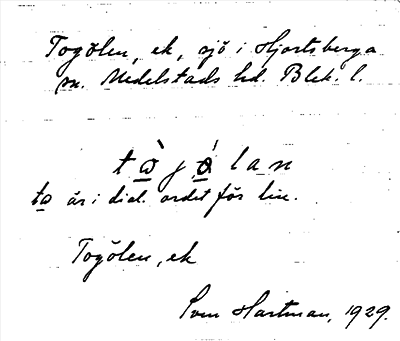 Togölen, ek, sjö i Hjortsberga
sn. Medelstads hd. Blek. l.
tὼjǿlan
to är i dial. ordet för lin.
Togölen, ek
Sven Hartman, 1929.